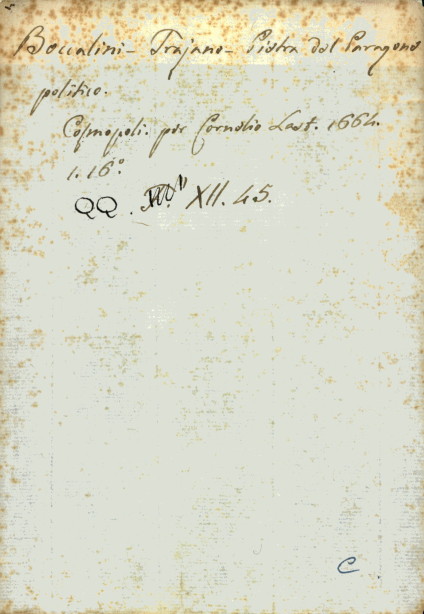 Boccalini - Trajano - Pietra del Paragone
politico.
Cosmopoli. per Cornelio Last. 1664.
1. 16°.
QQ. XII. 45.
C